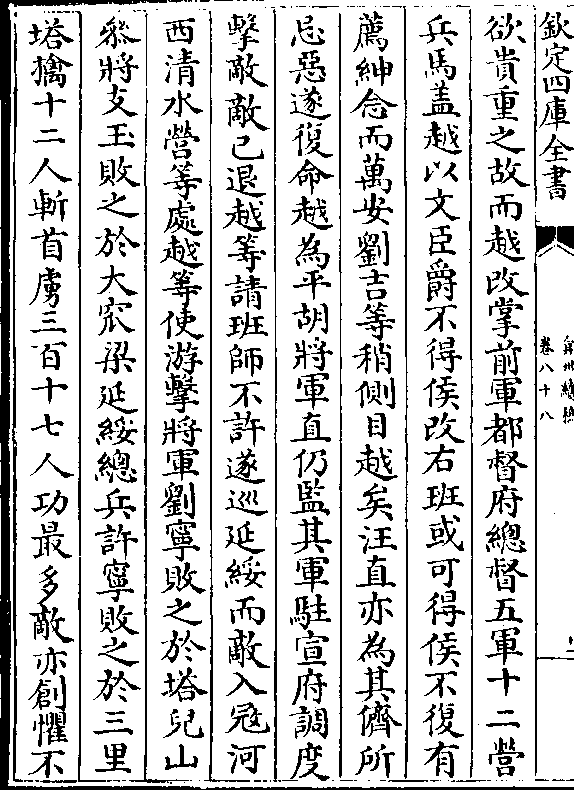 欽定四庫全書
弇州續稿
卷八十八
欲貴重之故而越改掌前軍都督府總督五軍十二營
兵馬蓋越以文臣爵不得侯改右班或可得侯不復有
薦紳念而萬安劉吉等稍側目越矣汪直亦為其儕所
忌惡遂復命越為平胡將軍直仍監其軍駐宣府調度
擊敵敵已退越等請班師不許遂巡延綏而敵入寇河
西清水營等處越等使游擊將軍劉寧敗之於塔兒山
叅將支玉敗之於大窊梁延綏總兵許寧敗之於三里
塔擒十二人斬首虜三百十七人功最多敵亦創懼不